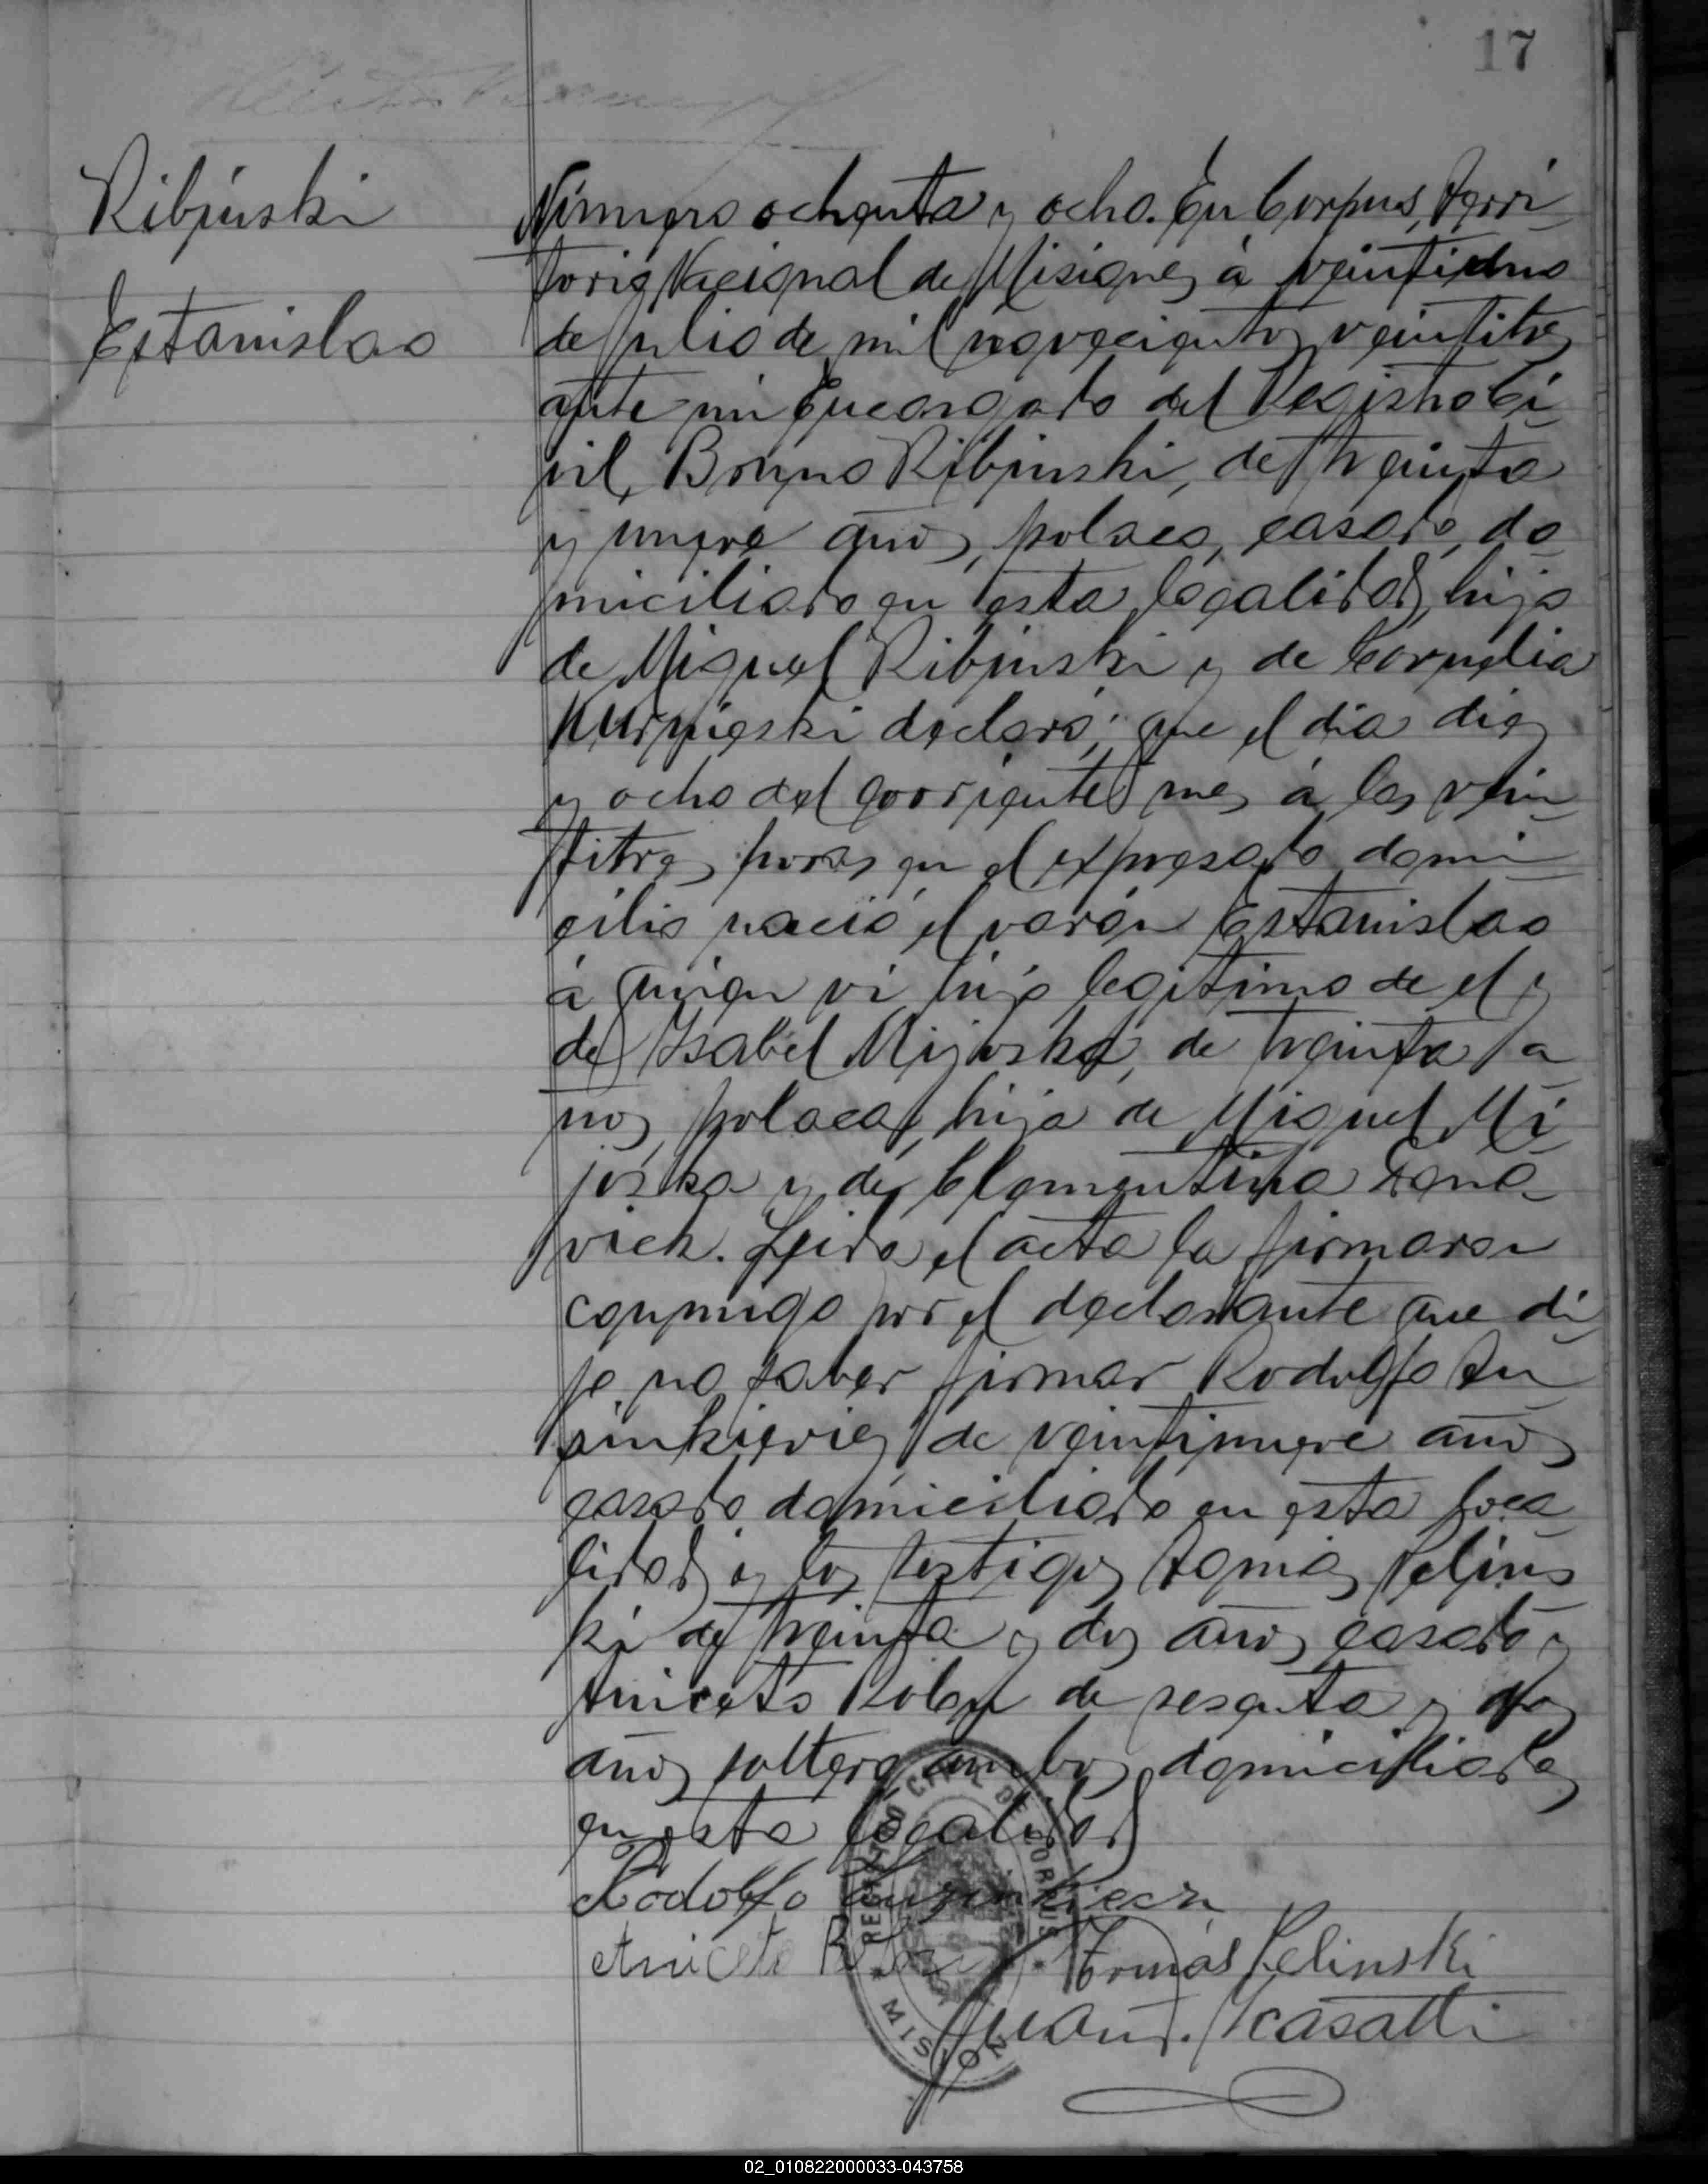 17
Ribinski
Estanislao
Número ochenta y ocho. En Corpus, Terri-
torio Nacional de Misiones á veintiuno
de Julio de mil novecientos veintitres
ante mi Encargado del Registro Ci-
vil, Bruno Ribinski, de treinta
y nueve años, polaco, casado, do-
miciliado en esta localidad, hijo
de Miguel Ribinski y de Cornelia
Kurpieski declaró; que el dia diez
y ocho del corriente mes á las vein-
titres horas en el expresado domi-
cilio nació el varón Estanislao
á quien vi hijo legitimo de el y
de Isabel Mijoska, de treinta a-
ños, polaca, hija de Miguel Mi-
joska y de Clementina
Leida el acta la firmaron
conmigo por el declarante que di-
jo no saber firmar Rodolfo
de veintinueve años
casado domiciliado en esta loca-
lidad y los testigos Tomás Pelins-
ki de treinta y dos años casado y
Aniceto Rolon de sesenta y dos
años soltero ambos domiciliados
en esta localidad
Rodolfo
Aniceto Rolon Tomás Pelinski
Juan J. Icasatti
REGISTRO CIVIL DE CORPUS
MISIONES
02_010822000033-043758